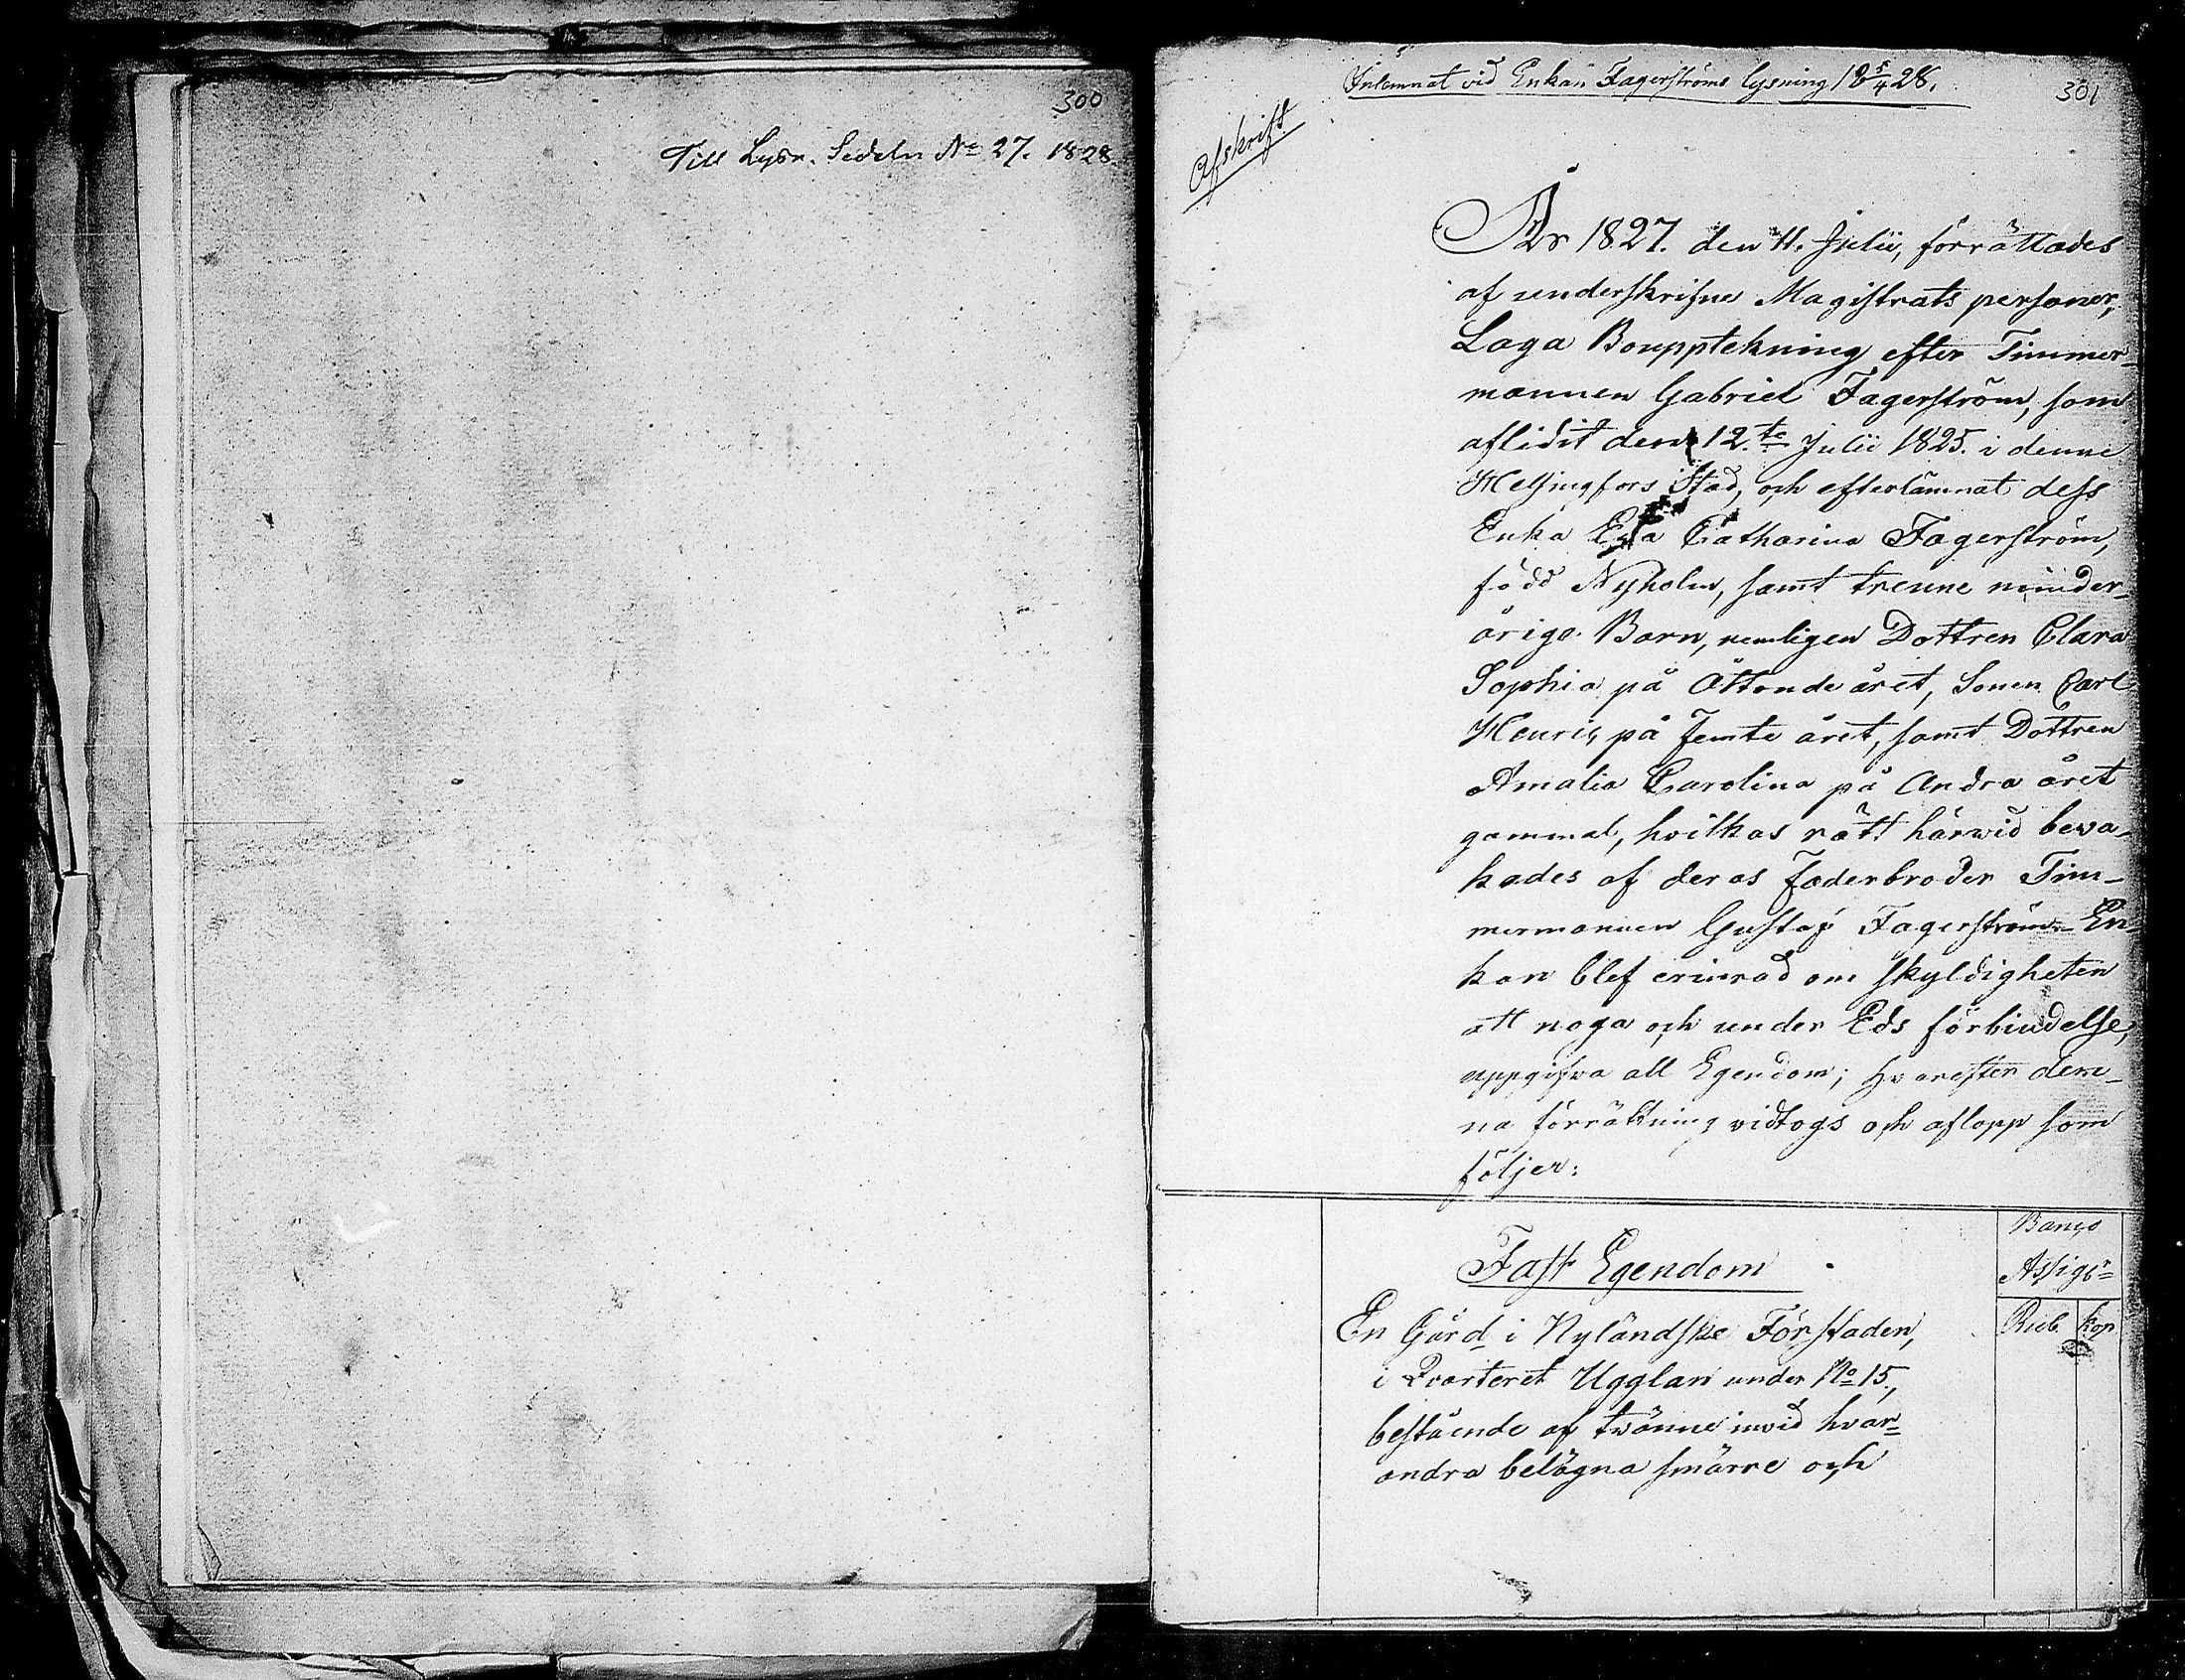 300
Till Lysn. Sedeln No 27. 1828.
Inlemnat vid Enkan Fagerströms lysning 18 5/4 28.
301
Afskrift
År 1827. den 11. Julii, förrättades
af underskrifne Magistrats personer,
Laga Boupptekning efter Timmer-
mannen Gabriel Fagerström, som
aflidit den 12.te Julii 1825. i denne
Helsingfors Stad, och efterlämnat dess
Enka Eva Catharina Fagerström,
född Nyholm, samt trenne minder-
åriga Barn, nemligen Dottren Clara
Sophia på Åttonde året, Sonen Carl
Henric, på femte året, samt Dottren
Amalia Carolina på Andra året
gammal, hvilkas rätt härwid beva-
kades af deras faderbroder Tim-
mermannen Gustaf Fagerström. En-
kan blef erinrad om skyldigheten
att noga och under Eds förbindelse,
uppgifva all Egendom; hvarefter den-
na förrättning vidtogs och aflopp som
följer:
Banco
Fast Egendom
Assigr=
En Gård i Nyländske Förstaden,
Rub. kop
i Qvarteret Ugglan under No 15,
bestående af twänne invid hvar=
andra belägna smärre och